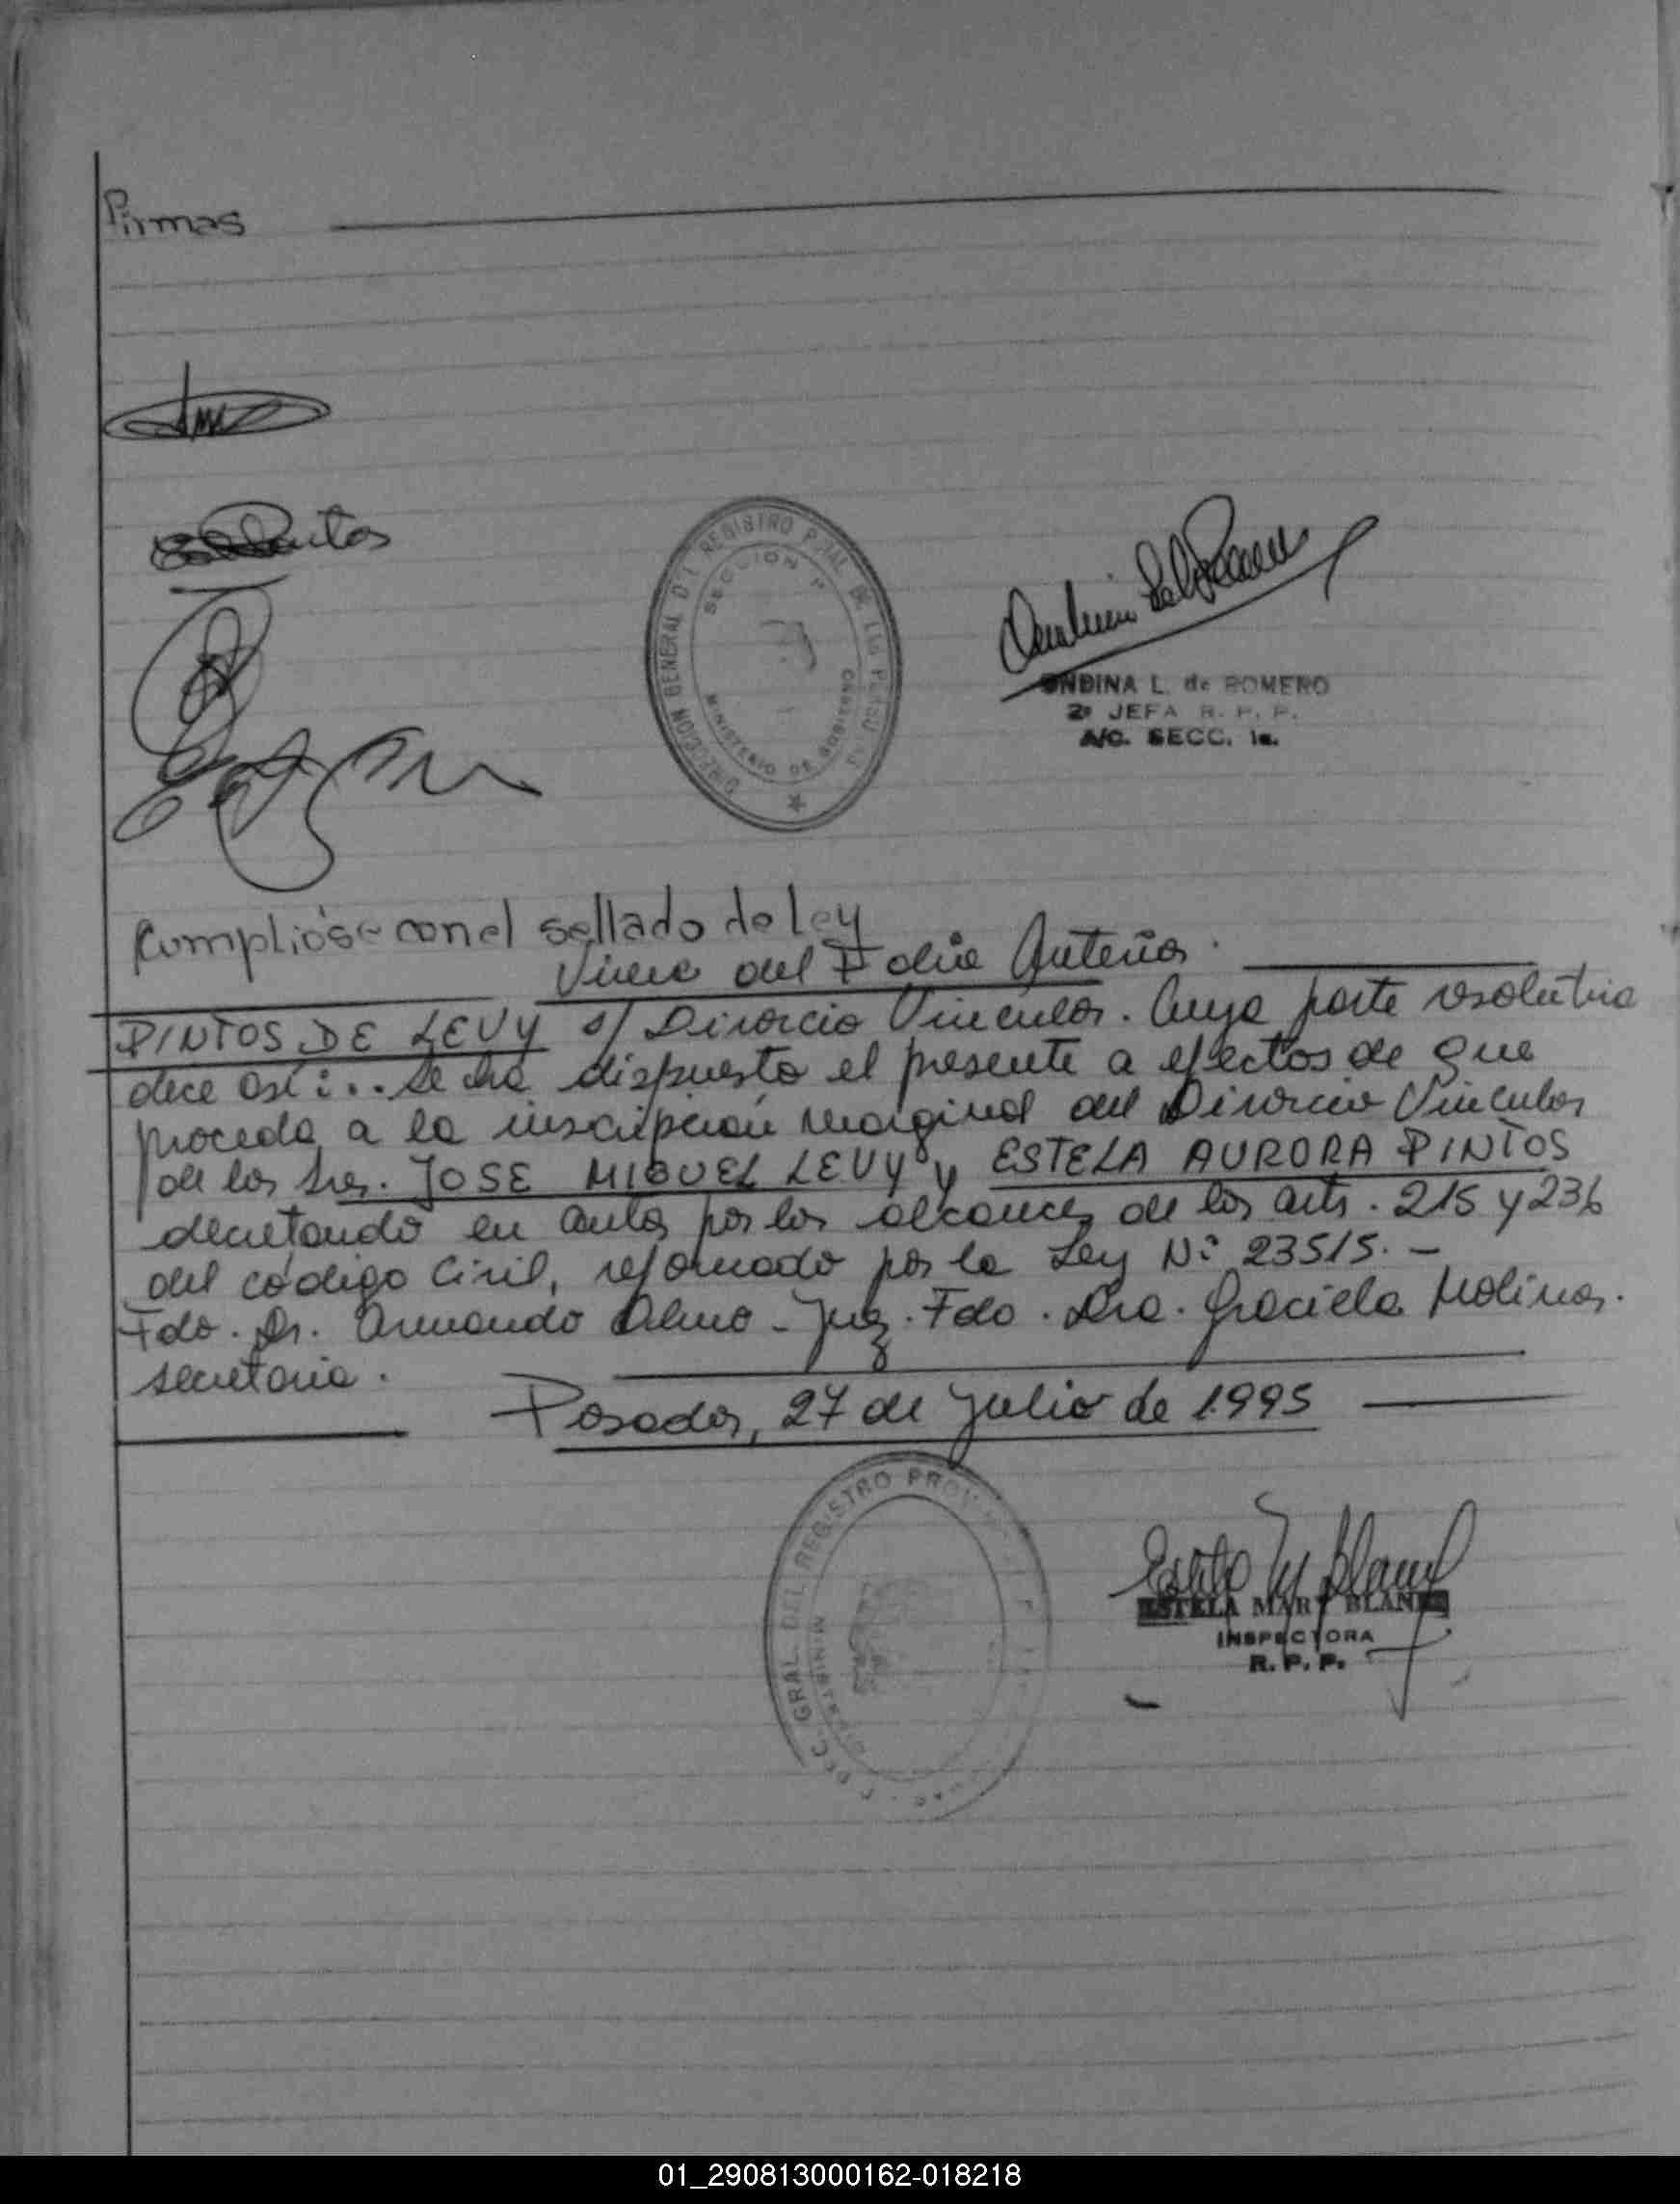 Firmas
DIRECCION GENERAL DEL REGISTRO P. DE LAS PERSONAS
SECCION 1ª
MINISTERIO DE GOBIERNO
ONDINA L. de ROMERO
2ª JEFA R. P. P.
A/C. SECC. 1a.
Cumplióse con el sellado de Ley
Viene del Folio Anterior.
PINTOS DE LEVY s/ Divorcio Vincular. Cuya parte resolutiva
dice así:.. Se ha dispuesto el presente a efectos de que
proceda a la inscripción marginal del Divorcio Vincular
de los Sres. JOSE MIGUEL LEVY y ESTELA AURORA PINTOS
decretando en autos por los alcances de los arts. 215 y 236
del código Civil, reformado por la Ley Nº 23515.-
Fdo. Dr. Armando - Juez. Fdo. Dra. Graciela Molinas.
secretaria.
Posadas, 27 de Julio de 1.995
GRAL. DEL REGISTRO PROV
MINISTERIO
ESTELA MARY BLAN
INSPECTORA
R. P. P.
01_290813000162-018218